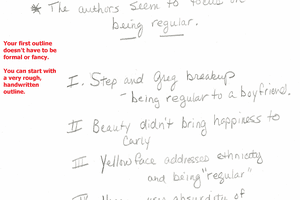 * The authors seem to focus on
being regular.
Your first outline
doesn't have to be
formal or fancy.
You can start with
a very rough,
handwritten
outline.
I. Step and Greg breakup
- being regular to a boyfriend.
II Beauty didn't bring happiness to
Carly
III Yellowface addresses ethnicity
and being "regular"
absurdity of